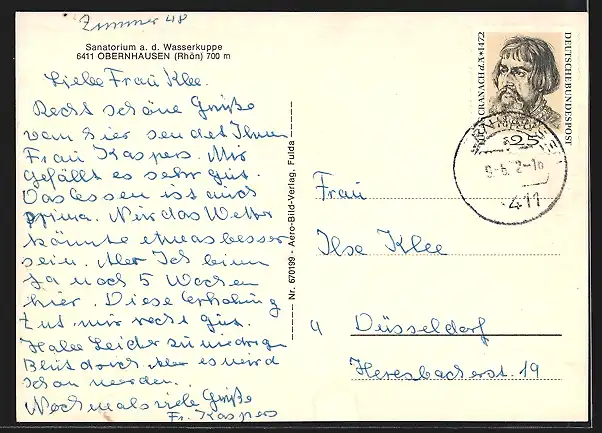 Zimmer 48
Sanatorium a. d. Wasserkuppe
6411 OBERNHAUSEN (Rhön) 700 m
Liebe Frau Klee.
Recht schöne Grüße
von hier sendet Ihnen
Frau Kaspers. Mir
gefällt es sehr gut.
Das Essen ist auch
prima. Nur das Wetter
könnte etwas besser
sein. Aber Ich bin
ja noch 5 Wochen
hier. Diese Erholung
tut mir recht gut.
Habe Leider zu niedrigen
Blutdruck Aber es wird
schon werden.
Nochmals viele Grüße
Fr. Kaspers
Nr. 670199 - Aero-Bild-Verlag, Fulda
CRANACH d.Ä*1472
DEUTSCHE BUNDESPOST
25
411
Frau
Ilse Klee
4 Düsseldorf
Heresbacherst. 19